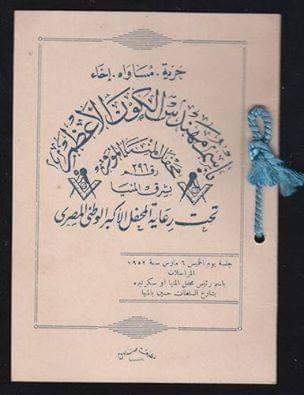 حرية . مساواه . إخاء
باسم مهندس الكون الأعظم
محفل المنيا الموقر
رقم ٢٩٦
بشرق المنيا
تحت رعاية المحفل الأكبر الوطنى المصرى
جلسة يوم الخميس ٦ مارس سنة ١٩٥٢
المراسلات
باسم رئيس محفل المنيا أو سكرتيره
بشارع السلطان حسين بالمنيا